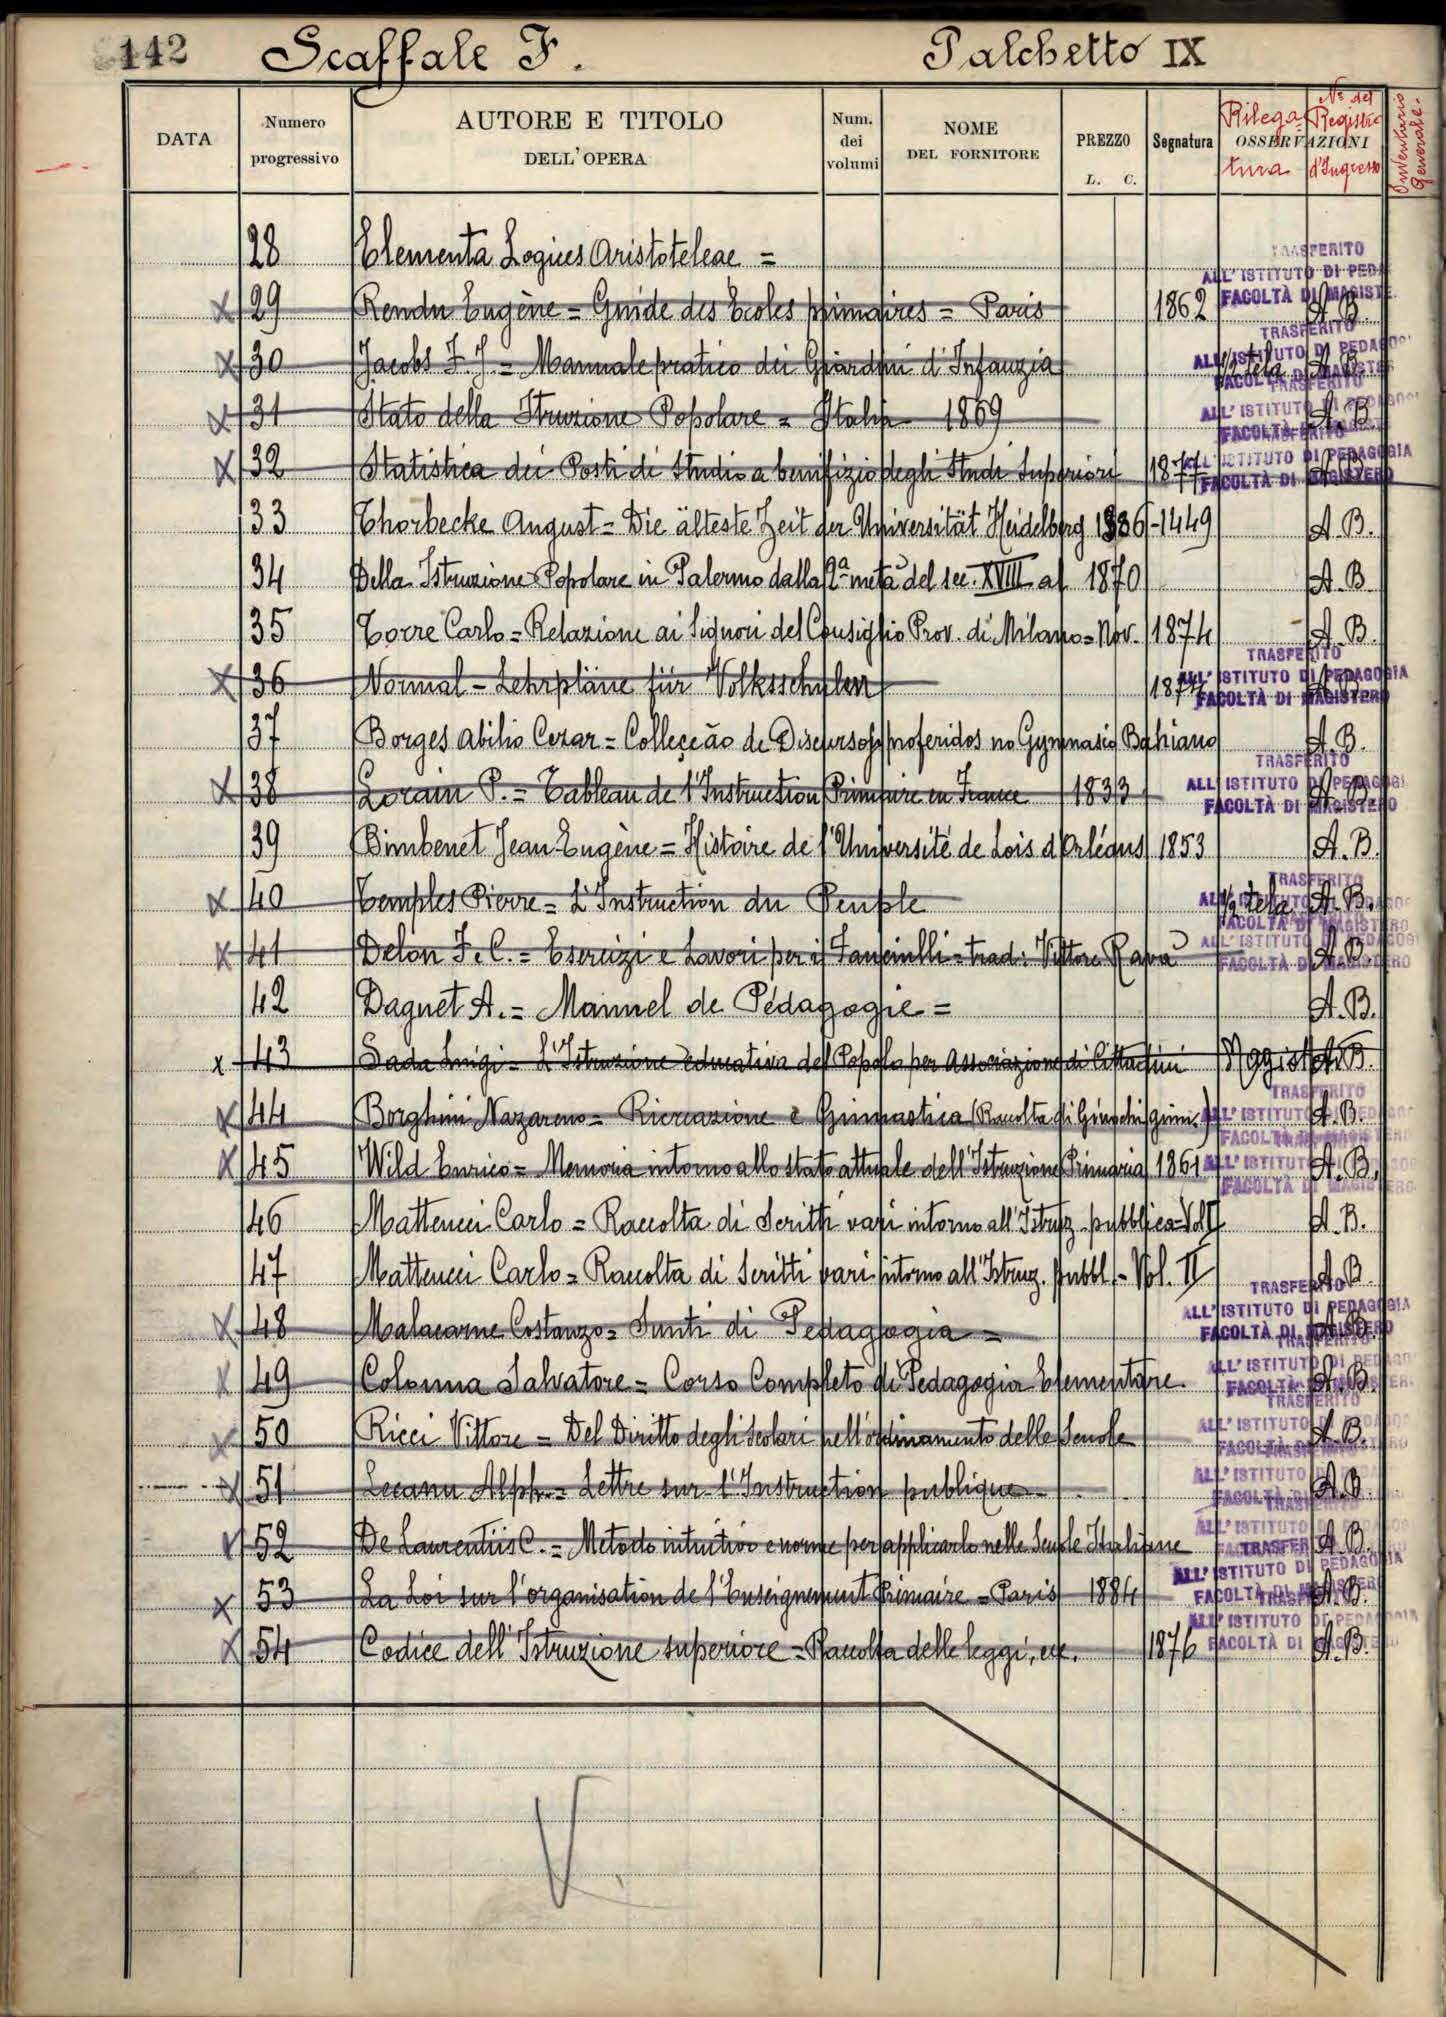 142 Scaffale F. Palchetto IX
DATA Numero progressivo AUTORE E TITOLO DELL'OPERA Num. dei volumi NOME DEL FORNITORE PREZZO L. C. Segnatura OSSERVAZIONI Rilegatura N° del Registro d'Ingresso Inventario Generale.
28 Elementa Logices Aristoteleae =
TRASFERITO ALL'ISTITUTO DI PEDA FACOLTÀ DI MAGISTE
29 Rendu Eugène = Guide des Ecoles primaires = Paris 1862 A.B.
TRASFERITO ALL'ISTITUTO DI PEDAGOGI FACOLTÀ DI MAGISTER
30 Jacobs F. J. = Manuale pratico dei Giardini d'Infanzia 1/2 tela A.B.
TRASFERITO ALL'ISTITUTO DI PEDAGOGI FACOLTÀ
31 Stato della Istruzione Popolare = Italia 1869 A.B.
TRASFERITO ALL'ISTITUTO DI PEDAGOGIA FACOLTÀ DI MAGISTERO
32 Statistica dei Posti di Studio a benifizio degli Studi Superiori 1877 A.B.
33 Thorbecke August = Die älteste Zeit der Universität Heidelberg 1386-1449 A.B.
34 Della Istruzione Popolare in Palermo dalla 2ª metà del sec. XVIII al 1870 A.B.
35 Torre Carlo = Relazione ai Signori del Consiglio Prov. di Milano = Nov. 1874 A.B.
TRASFERITO ALL'ISTITUTO DI PEDAGOGIA FACOLTÀ DI MAGISTERO
36 Normal - Lehrpläne für Volksschulen 1877 A.B.
37 Borges Abilio Cezar = Colleçeão de Discursos proferidos no Gymnasio Bahiano A.B.
TRASFERITO ALL'ISTITUTO DI PEDAGOGI FACOLTÀ DI MAGISTERO
38 Lorain P. = Tableau de l'Instruction Primaire en France 1833 A.B.
39 Bimbenet Jean-Eugène = Histoire de l'Université de Lois d'Orléans 1853 A.B.
TRASFERITO ALL'ISTITUTO DI PEDAGOG FACOLTÀ DI MAGISTERO
40 Temples Pierre = L'Instruction du Peuple 1/2 tela A.B.
TRASFERITO ALL'ISTITUTO DI PEDAGOGI FACOLTÀ DI MAGISTERO
41 Delon F. C. = Esercizi e Lavori per i Fanciulli = trad: Vittore Ravà A.B.
42 Daguet A. = Manuel de Pédagogie = A.B.
43 Sada Luigi = L'Istruzione educativa del Popolo per Associazione di Cittadini A.B.
TRASFERITO ALL'ISTITUTO DI PEDAGOG FACOLTÀ DI MAGISTERO
44 Borghini Nazareno = Ricreazione e Ginnastica (Raccolta di Giuochi ginn.) A.B.
ALL'ISTITUTO DI PEDAGOG FACOLTÀ DI MAGISTERO
45 Wild Enrico = Memoria intorno allo stato attuale dell'Istruzione Primaria 1861 A.B.
46 Matteucci Carlo = Raccolta di Scritti vari intorno all'Istruz. pubblica = Vol I A.B.
47 Matteucci Carlo = Raccolta di Scritti vari intorno all'Istruz. pubbl. - Vol. II A.B.
TRASFERITO ALL'ISTITUTO DI PEDAGOGIA FACOLTÀ DI MAGISTERO
48 Malacarne Costanzo = Sunti di Pedagogia = A.B.
TRASFERITO ALL'ISTITUTO DI PEDAGO FACOLTÀ DI MAGISTER
49 Colonna Salvatore = Corso Completo di Pedagogia Elementare. A.B.
TRASFERITO ALL'ISTITUTO DI PEDAGOG FACOLTÀ DI MAGISTERO
50 Ricci Vittore = Del Diritto degli Scolari nell'ordinamento delle Scuole A.B.
ALL'ISTITUTO DI PEDA FACOLTÀ DI
51 Lecanu Alph. = Lettre sur l'Instruction publique A.B.
TRASFERITO ALL'ISTITUTO DI PEDAGO
52 De Laurentiis C. = Metodo intuitivo e norme per applicarlo nelle Scuole Italiane A.B.
TRASFER ALL'ISTITUTO DI PEDAGOGIA FACOLTÀ DI MAGISTERO
53 La Loi sur l'organisation de l'Enseignement Primaire = Paris 1884 A.B.
TRASFERITO ALL'ISTITUTO DI PEDAGOGIA FACOLTÀ DI MAGISTERO
54 Codice dell'Istruzione superiore = Raccolta delle leggi, ecc. 1876 A.B.